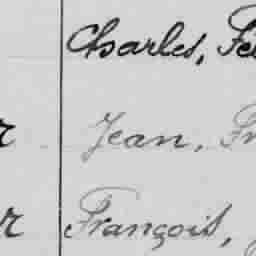 Charles, Fé
r Jean, Fr
r François,